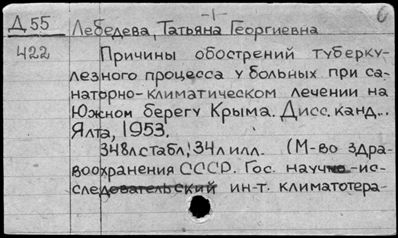 -1-
Д 55 Лебедева, Татьяна Георгиевна
422 Причины обострений туберку-
лезного процесса у больных при са-
наторно-климатическом лечении на
Южном берегу Крыма. Дисс. канд...
Ялта, 1953.
348л.с табл; 34л илл. (М-во здра-
воохранения СССР. Гос. научно-ис-
следовательский ин-т. климатотера-